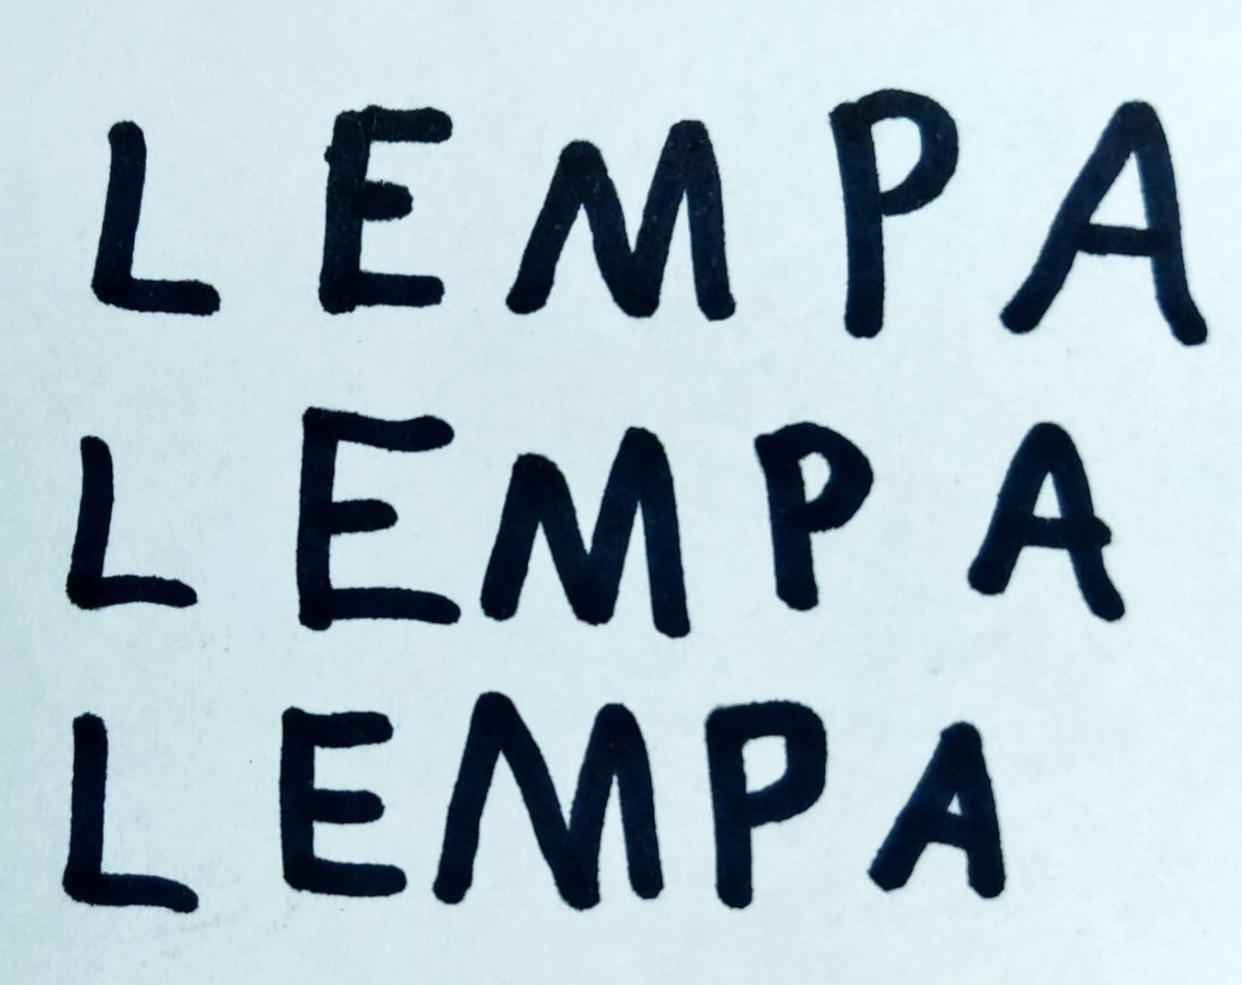 LEMPA
LEMPA
LEMPA